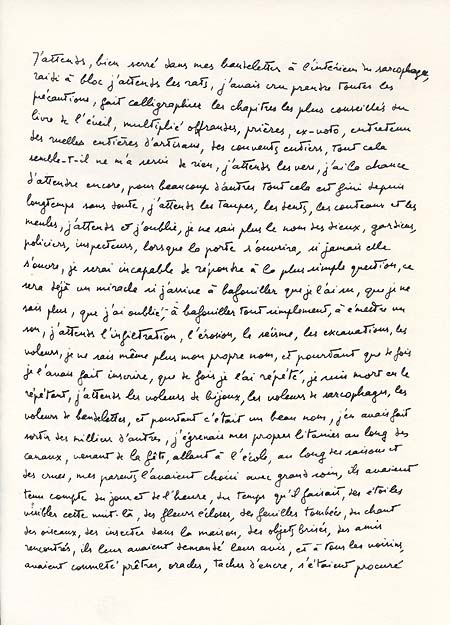 J'attends, bien serré dans mes bandelettes à l'intérieur du sarcophage,
raidi à bloc j'attends les rats, j'avais cru prendre toutes les
précautions, fait calligraphier les chapitres les plus conseillés du
livre de l'éveil, multiplié offrandes, prières, ex-voto, entretenu
des ruelles entières d'artisans, des couvents entiers, tout cela
semble-t-il ne m'a servi de rien, j'attends les vers, j'ai la chance
d'attendre encore, pour beaucoup d'autres tout cela est fini depuis
longtemps sans doute, j'attends les taupes, les dents, les couteaux et les
meules, j'attends et j'oublie, je ne sais plus le nom des dieux, gardiens,
policiers, inspecteurs, lorsque la porte s'ouvrira, si jamais elle
s'ouvre, je serai incapable de répondre à la plus simple question, ce
sera déjà un miracle si j'arrive à bafouiller que je l'ai su, que je ne
sais plus, que j'ai oublié, à bafouiller tout simplement, à émettre un
son, j'attends l'infiltration, l'érosion, le séisme, les excavations, les
voleurs, je ne sais même plus mon propre nom, et pourtant que de fois
je l'avais fait inscrire, que de fois je l'ai répété, je suis mort en le
répétant, j'attends les voleurs de bijoux, les voleurs de sarcophages, les
voleurs de bandelettes, et pourtant c'était un beau nom, j'en avais fait
sortir des milliers d'autres, j'égrenais mes propres litanies au long des
canaux, venant de la fête, allant à l'école, au long des saisons et
des crues, mes parents l'avaient choisi avec grand soin, ils avaient
tenu compte du jour et de l'heure, du temps qu'il faisait, des étoiles
visibles cette nuit-là, des fleurs écloses, des feuilles tombées, du chant
des oiseaux, des insectes dans la maison, des objets brisés, des amis
rencontrés, ils leur avaient demandé leur avis, et à tous les voisins,
avaient consulté prêtres, oracles, taches d'encre, s'étaient procuré